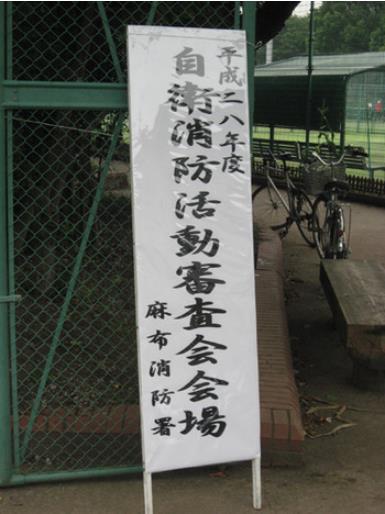 平成二八年度
自衛消防活動審査会会場
麻布消防署